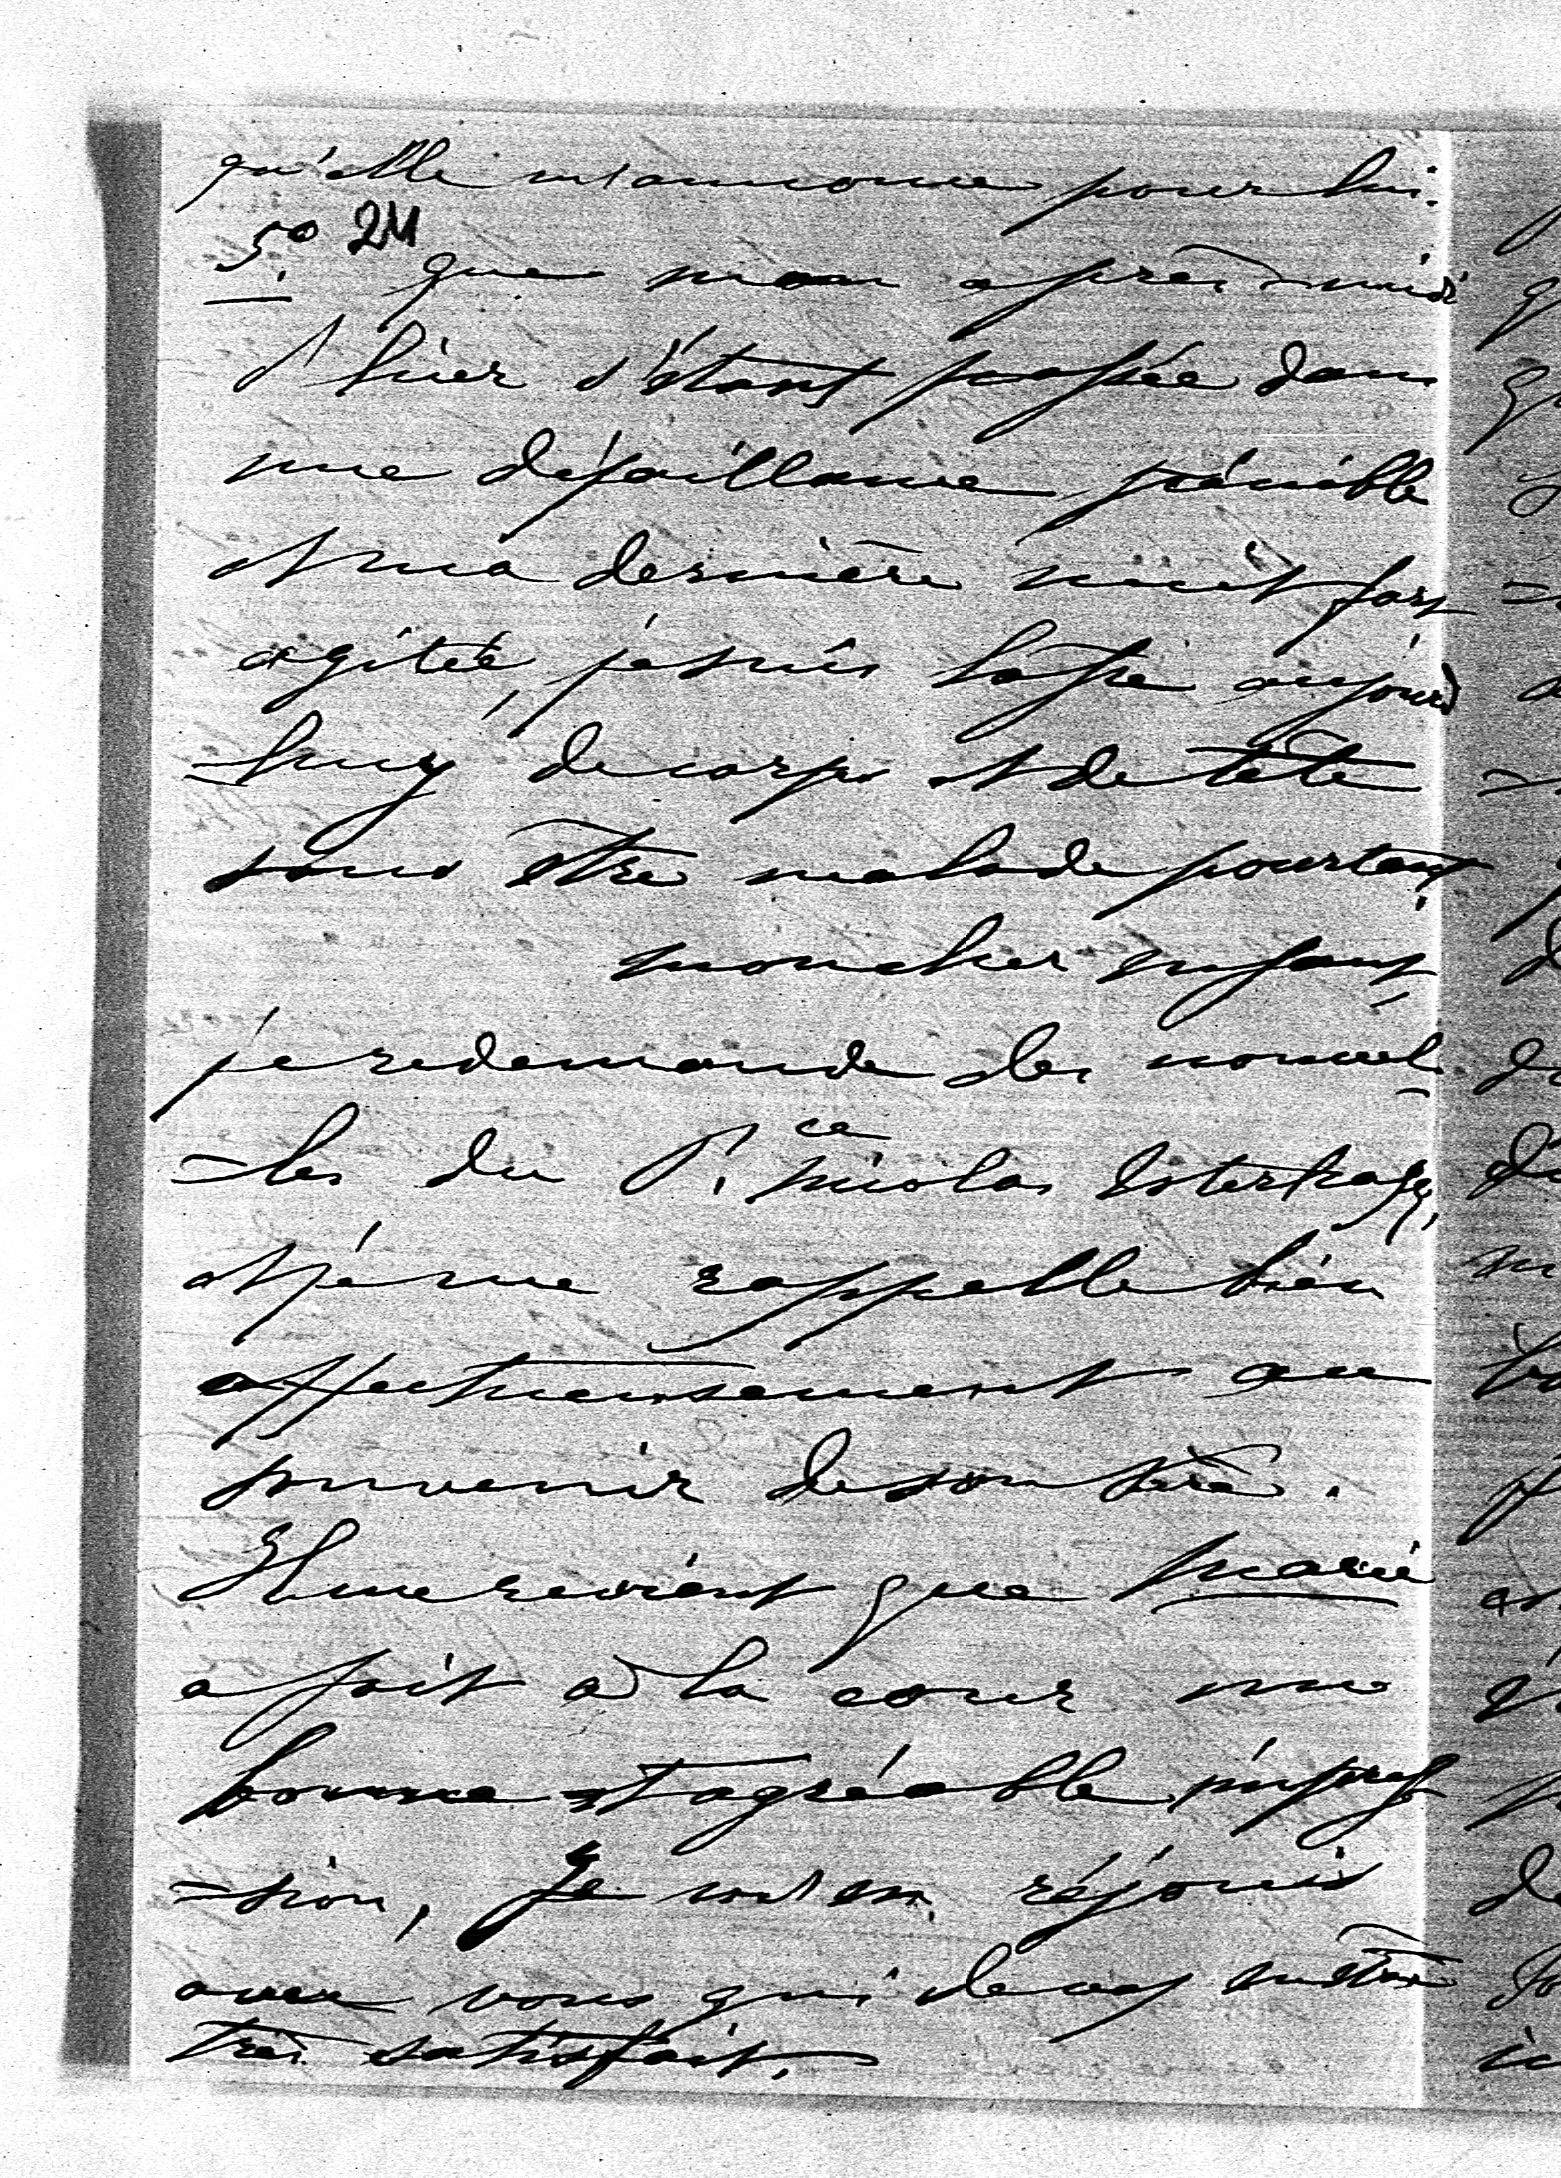 qu'elle m'annonce pour lui.
5º 2M que mon après-midi
d'hier s'étant passée dans
une défaillance pénible
et ma dernière nuit fort
agitée, je suis lasse aujourd
-huy de corps et de tête
sans être malade pourtant,
mon cher enfant
je redemande des nouvel-
-les du P.ce Nicolas Esterhazy,
et je me rappelle bien
affectueusement au
souvenir de son père.
Il me revient que Marie
a fait à la cour une
bonne et agréable impres
-sion, Je m'en réjouis
avec vous qui devez en être
très satisfait.